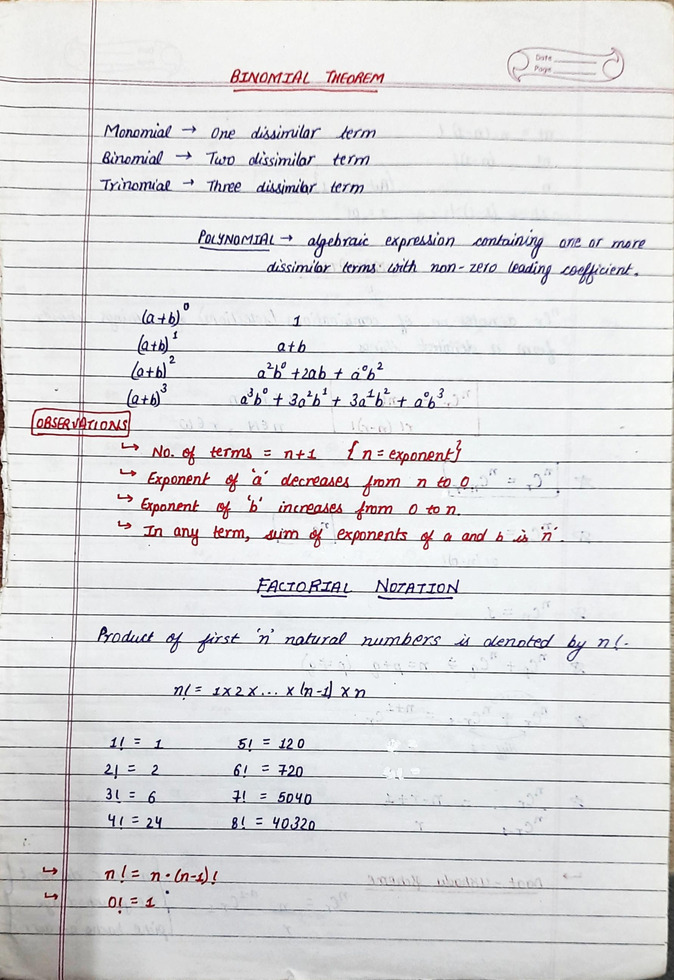 Date
Page
BINOMIAL THEOREM
Monomial → One dissimilar term
Binomial → Two dissimilar term
Trinomial → Three dissimilar term
POLYNOMIAL → algebraic expression containing one or more
dissimilar terms with non-zero leading coefficient.
(a+b)⁰ 1
(a+b)¹ a+b
(a+b)² a²b⁰ + 2ab + a⁰b²
(a+b)³ a³b⁰ + 3a²b¹ + 3a¹b² + a⁰b³
OBSERVATIONS
↳ No. of terms = n+1 {n = exponent}
↳ Exponent of 'a' decreases from n to 0
↳ Exponent of 'b' increases from 0 to n.
↳ In any term, sum of exponents of a and b is 'n'.
FACTORIAL NOTATION
Product of first 'n' natural numbers is denoted by n!.
n! = 1×2×... × (n-1) × n
1! = 1 5! = 120
2! = 2 6! = 720
3! = 6 7! = 5040
4! = 24 8! = 40320
↳ n! = n·(n-1)!
↳ 0! = 1